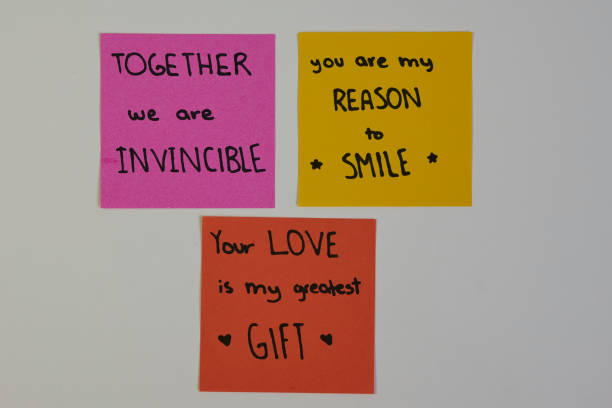 TOGETHER
we are
INVINCIBLE
you are my
REASON
to
* SMILE *
Your LOVE
is my greatest
♥ GIFT ♥